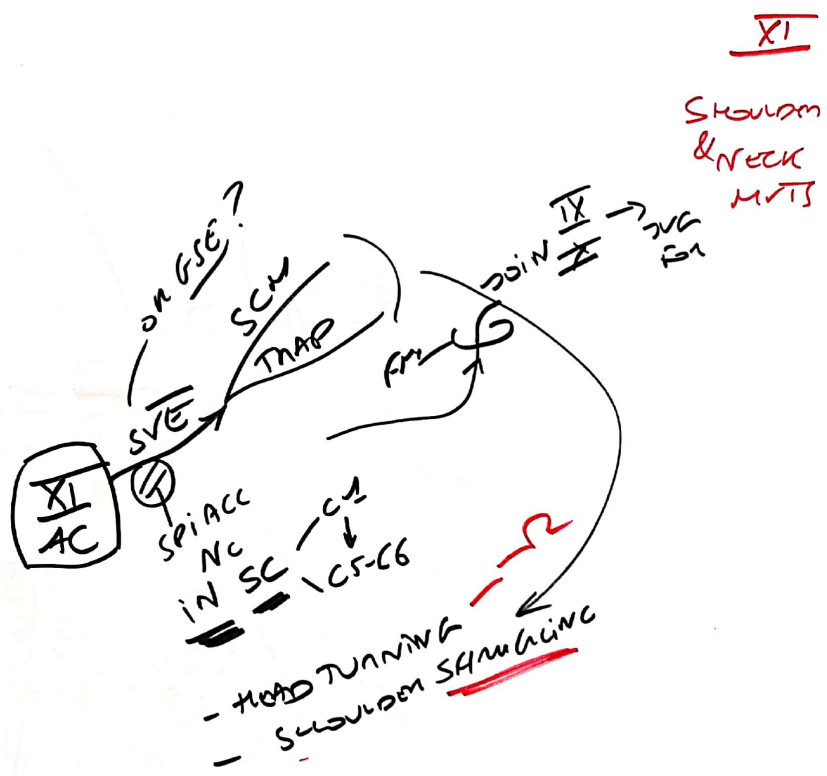 XI
SHOULDER
& NECK
MVTS
OR GSE?
SCM
TRAP
SVE
XI
AC
SPiACC
NC
iN SC
C1
C5-C6
FM
JOiN IX
X
JUG
FOR
- HEAD TURNING
- SHOULDER SHRUGGING